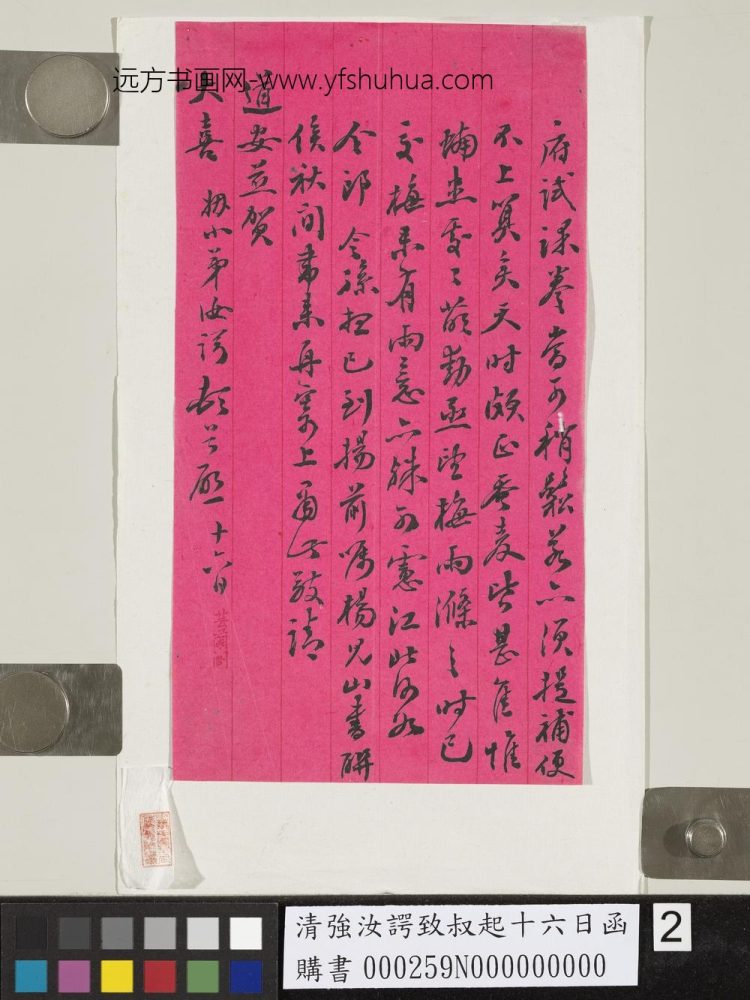 远方书画网-www.yfshuhua.com
府試課卷當可稍鬆若亦須提補便
不上算矣天時頗正蚕麦皆甚佳惟
蝻患處處萌動亟望梅雨滌之時已
交梅未有雨意亦殊可慮江北何如
令郎令孫想已到揚前嘱楊兄山書聯
俟秋间帶来再寄上耑此敬請
道安並賀
大喜 姻小弟汝諤頓首啟 十六日
清強汝諤致叔起十六日函
購書 000259N000000000
2